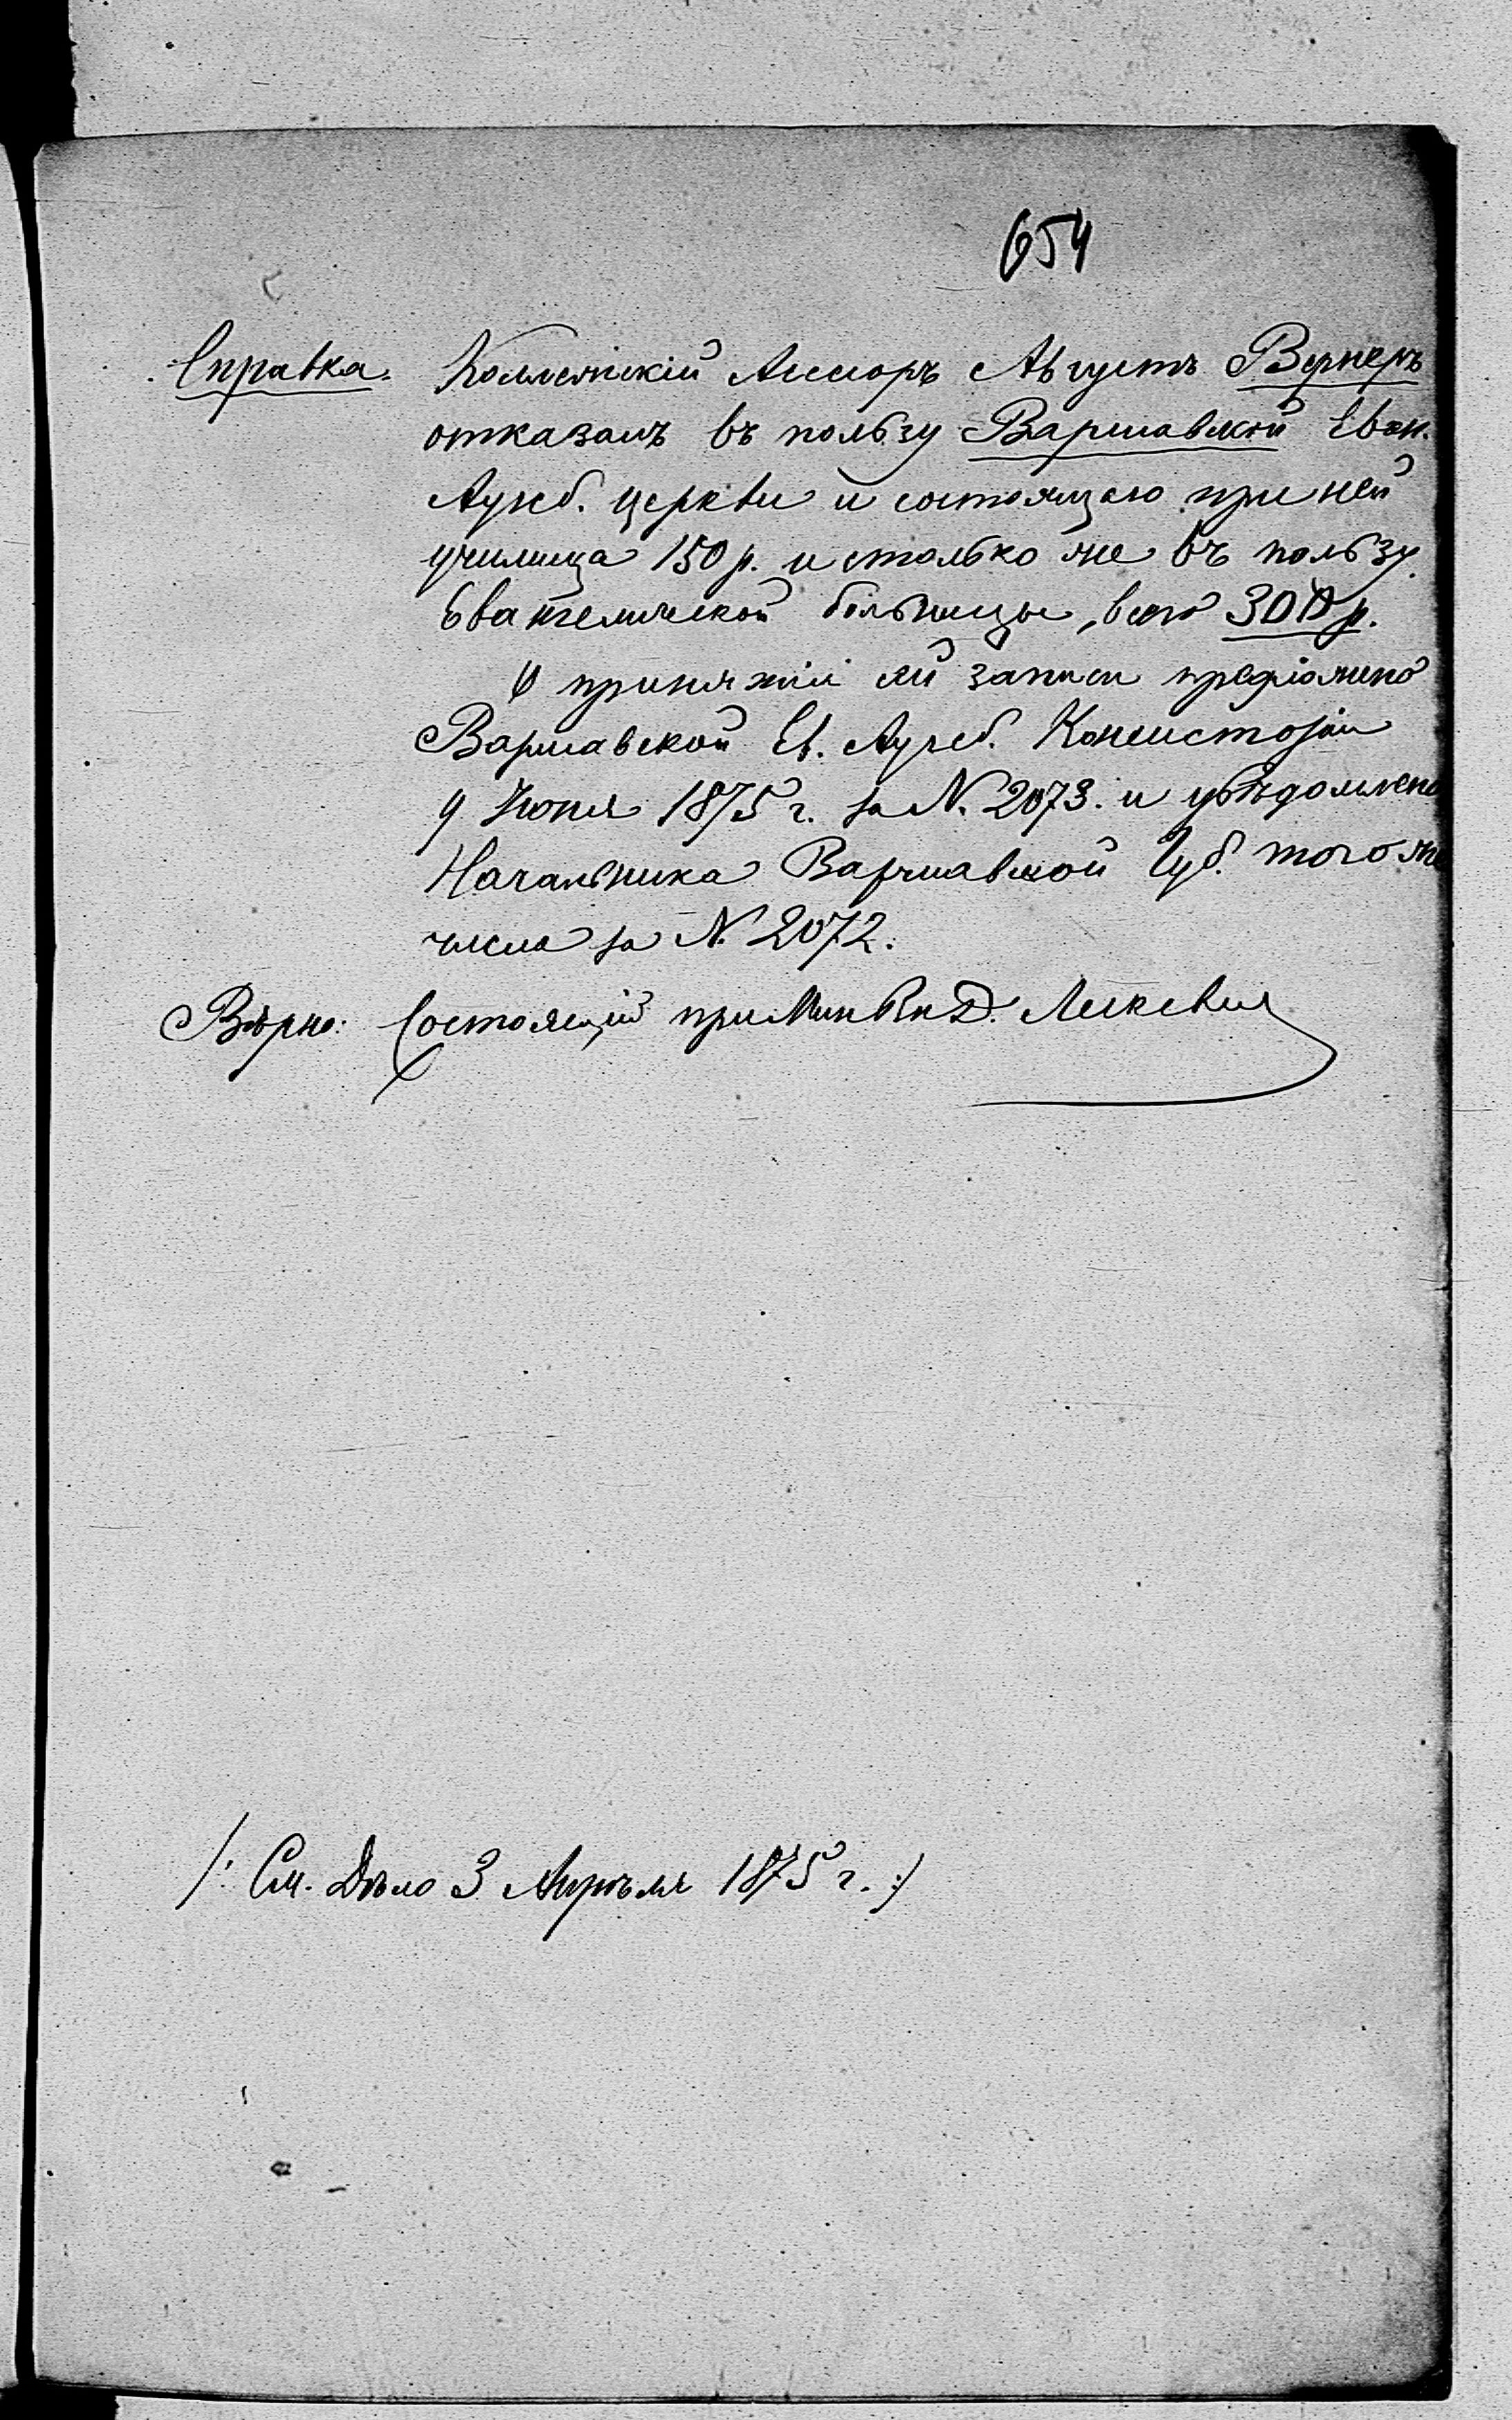 654
Справка. Коллежскій Ассесоръ Августъ Вернеръ
отказалъ въ пользу Варшавской Еван.
Аугсб. церкви и состоящаго при ней
училища 150 р. и столько же въ пользу
Евангелической больницы, всего 300 р.
О принятіи сей записи предложено
Варшавской Ев. Аугсб. Консисторіи
9 Іюня 1875 г. за N. 2073. и увѣдомлено
Начальника Варшавской Губ. того же
числа за N. 2072.
Вѣрно: Состоящій при Мин Вн Д.
/: См. Дѣло 3 Апрѣля 1875 г. :/